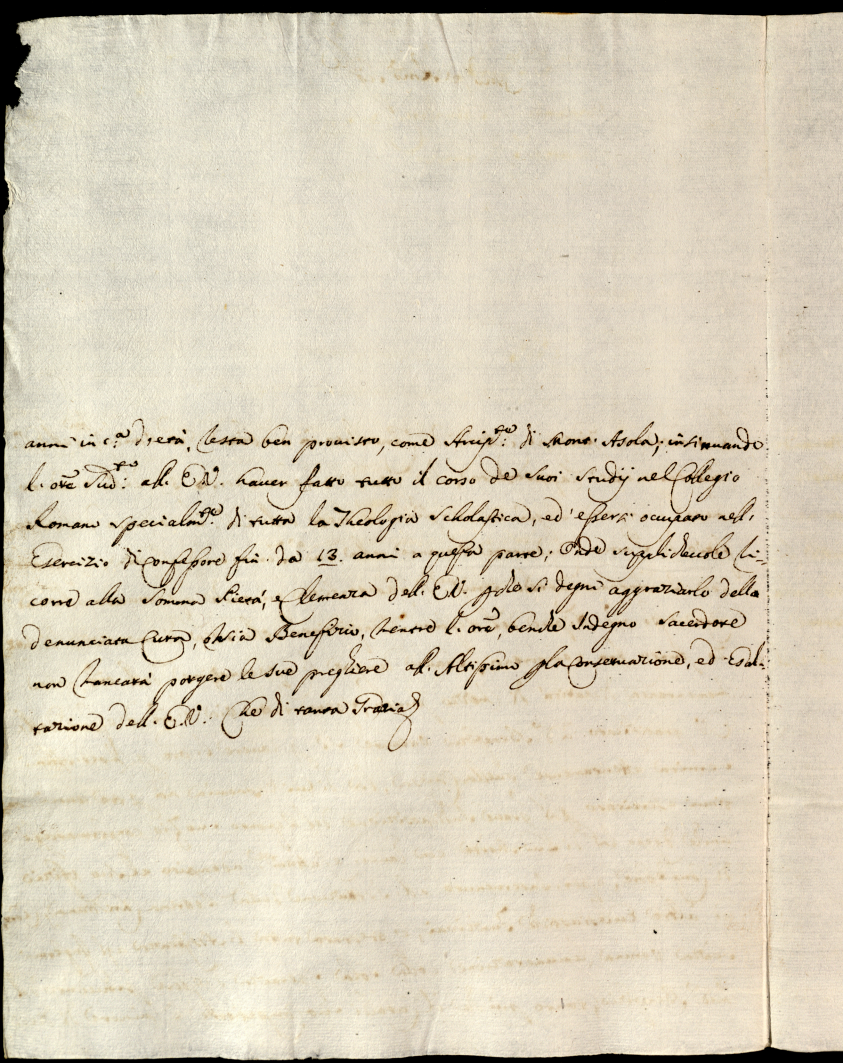 anni in c.ª d'età, resta ben provisto, come Arcip.te di Mont'Asola; insinuando
l'ore Sud.to all'E.V. haver fatto tutto il corso de suoi Studij nel Collegio
Romano specialm.te di tutta la Theologia Scholastica, ed' essersi ocupato nell'
Esercizio di Confessore fin da 13. anni a questa parte; Onde supplichevole ri-
corre alla somma Pietà, e Clemenza dell'E.V. si degni aggraziarlo della
denunciata Cura, ò sia Benefizio, mentre l'ore, benche Indegno Sacerdote
non mancarà porgere le sue preghiere all'Altissimo p la Conservazione, ed Esal-
tazione dell'E.V. Che di tanta Grazia